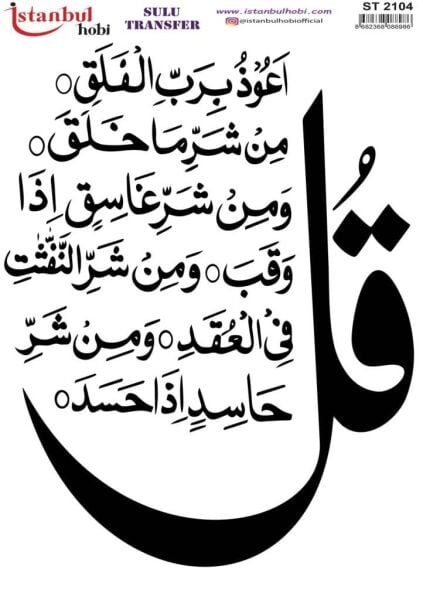 istanbul
hobi
SULU
TRANSFER
www.istanbulhobi.com
@istanbulhobiofficial
ST 2104
8 682368 086986
قُل
اَعُوْذُ بِرَبِّ الْفَلَقِ ○
مِنْ شَرِّ مَا خَلَقَ ○
وَمِنْ شَرِّ غَاسِقٍ اِذَا
وَقَبَ ○ وَمِنْ شَرِّ النَّفّٰثٰتِ
فِي الْعُقَدِ ○ وَمِنْ شَرِّ
حَاسِدٍ اِذَا حَسَدَ ○